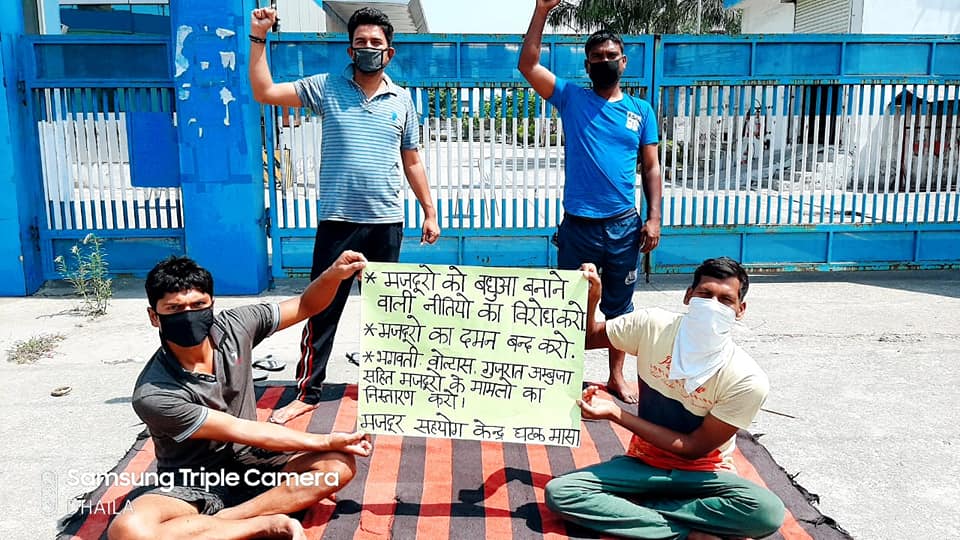 * मजदूरो को बधुआ बनाने
वाली नीतियो का विरोध करो.
* मजदूरो का दमन बन्द करो.
* भगवती, वोल्टास, गुजरात अम्बुजा
सहित मजदूरो के मामलो का
निस्तारण करो!
मजदूर सहयोग केन्द्र घटक मासा
Samsung Triple Camera
DHAILA